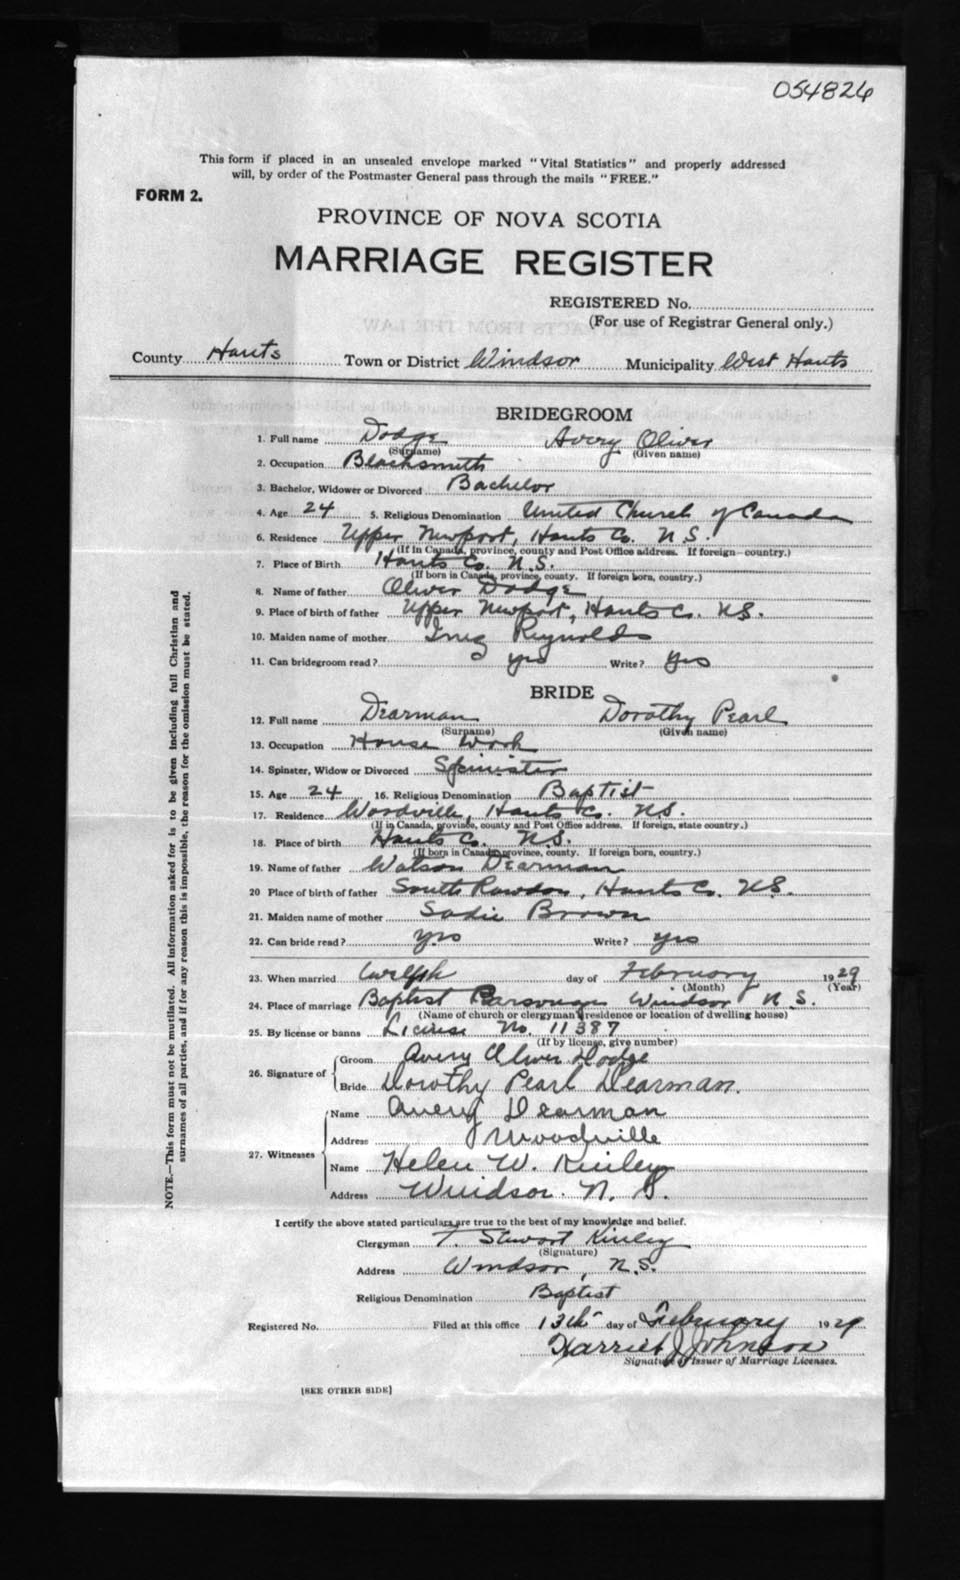 054826
This form if placed in an unsealed envelope marked "Vital Statistics" and properly addressed
will, by order of the Postmaster General pass through the mails "FREE."
FORM 2.
PROVINCE OF NOVA SCOTIA
MARRIAGE REGISTER
REGISTERED No.
(For use of Registrar General only.)
County Hants Town or District Windsor Municipality West Hants
BRIDEGROOM
1. Full name Dodge Avery Oliver
(Surname) (Given name)
2. Occupation Blacksmith
3. Bachelor, Widower or Divorced Bachelor
4. Age 24 5. Religious Denomination United Church of Canada
6. Residence Upper Newport, Hants Co. N.S.
(If in Canada, province, county and Post Office address. If foreign—country.)
7. Place of Birth Hants Co. N.S.
(If born in Canada, province, county. If foreign born, country.)
8. Name of father Oliver Dodge
9. Place of birth of father Upper Newport, Hants Co. N.S.
10. Maiden name of mother Inez Reynolds
11. Can bridegroom read? yes Write? yes
BRIDE
12. Full name Dearman Dorothy Pearl
(Surname) (Given name)
13. Occupation House Work
14. Spinster, Widow or Divorced Spinister
15. Age 24 16. Religious Denomination Baptist
17. Residence Woodville, Hants Co. N.S.
(If in Canada, province, county and Post Office address. If foreign, state country.)
18. Place of birth Hants Co. N.S.
(If born in Canada, province, county. If foreign born, country.)
19. Name of father Watson Dearman
20 Place of birth of father South Rawdon, Hants Co. N.S.
21. Maiden name of mother Sadie Brown
22. Can bride read? yes Write? yes
23. When married twelfth day of February 1929
(Month) (Year)
24. Place of marriage Baptist Parsonage Windsor N.S.
(Name of church or clergyman's residence or location of dwelling house)
25. By license or banns License No. 11387
(If by license, give number)
26. Signature of Groom Avery Oliver Dodge
Bride Dorothy Pearl Dearman.
27. Witnesses Name Avery Dearman
Address Woodville
Name Helen W. Kinley
Address Windsor. N. S.
I certify the above stated particulars are true to the best of my knowledge and belief.
Clergyman T. Stewart Kinley
(Signature)
Address Windsor, N.S.
Religious Denomination Baptist
Registered No. Filed at this office 13th day of February 1929
Harriet J Johnson
Signature of Issuer of Marriage Licenses.
[SEE OTHER SIDE]
NOTE.—This form must not be mutilated. All information asked for is to be given including full Christian and
surnames of all parties, and if for any reason this is impossible, the reason for the omission must be stated.